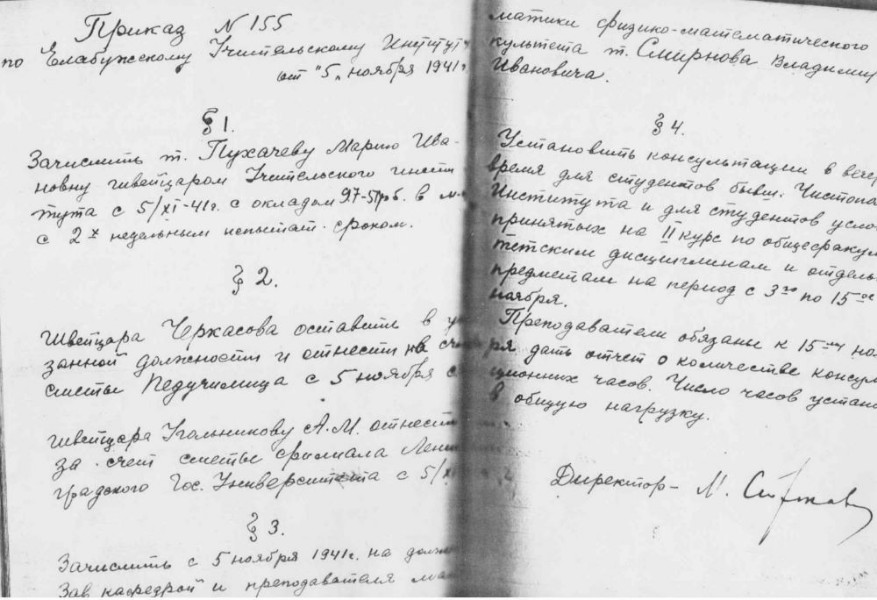 Приказ N 155
по Елабужскому Учительскому Институту
от "5" ноября 1941г.
§ 1.
Зачислить т. Пухачеву Марию Ива-
новну швейцаром Учительского инсти
тута с 5/XI-41г. с окладом 97-50руб. в м
с 2х недельным испытат. сроком.
§ 2.
Швейцара Черкасова оставить в
занной должности и отнести на счет
сметы Педучилища с 5 ноября с
Швейцара Угольникову А.М. отнести
за счет сметы филиала Ленин
градского Гос. Университета с 5/XI
§ 3.
Зачислить с 5 ноября 1941г. на долж
Зав кафедрой и преподавателя ма
матики физико-математического
культета т. Смирнова Владимир
Ивановича.
§ 4.
Установить консультации в вечер
время для студентов бывш. Чистопо
Института и для студентов усло
принятых на II курс по общефакул
тетским дисциплинам и отдель
предметам на период с 3го по 15ое
ноября.
Преподаватели обязаны к 15ому ноя
ря дать отчет о количестве консуль
ционных часов. Число часов устано
в общую нагрузку.
Директор- М.